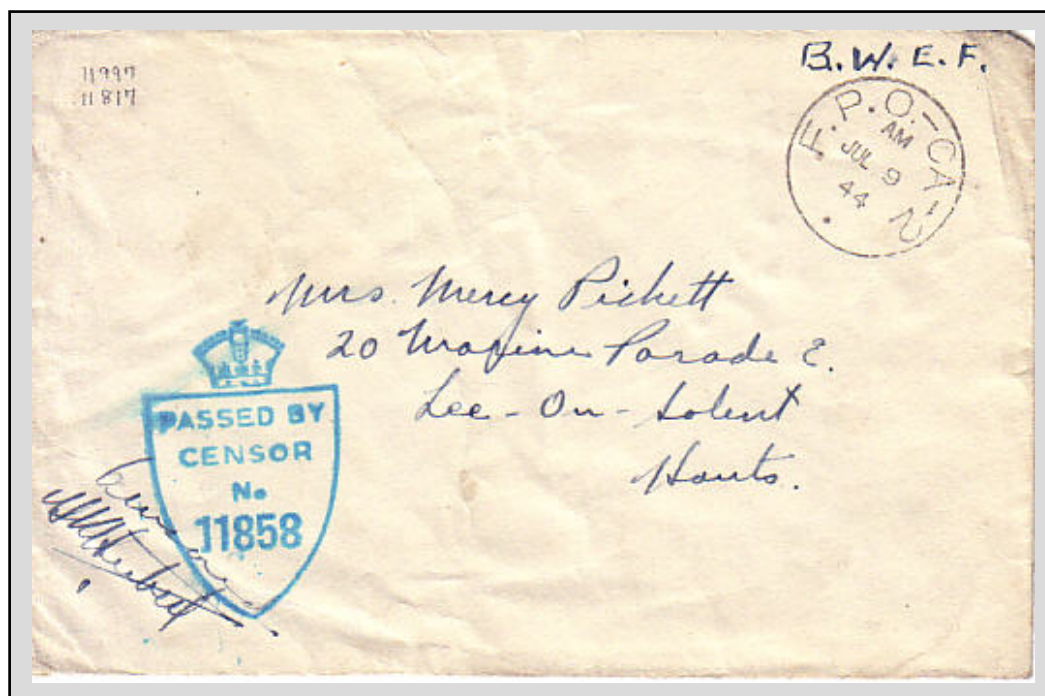 11997
11817
B.W.E.F.
F.P.O.-CA-2
AM
JUL 9
44
Mrs. Mercy Pickett
20 Marine Parade E.
Lee-On-Solent
Hants.
PASSED BY
CENSOR
No
11858